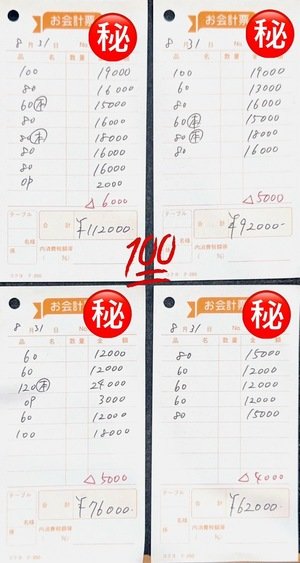 お会計票
秘
8月31日 No.
品名 数量 金額
100 19000
80 16000
60(本) 15000
80 16000
80(本) 18000
80 16000
80 16000
OP 2000
△6000
テーブル
合計 ¥112000
名様 内消費税額等
係 %)
コクヨ テ-250
お会計票
秘
8月31日 No.
品名 数量 金額
100 19000
60 13000
80 16000
60(本) 15000
80(本) 18000
80 16000
△5000
テーブル
合計 ¥92000-
名様 内消費税額等
係 %)
100
お会計票
秘
8月31日 No.
品名 数量 金額
60 12000
60 12000
120(本) 24000
OP 3000
60 12000
100 18000
△5000
テーブル
合計 ¥76000-
名様 内消費税額等
係 %)
お会計票
秘
8月31日 No.
品名 数量 金額
80 15000
60 12000
60 12000
60 12000
80 15000
△4000
テーブル
合計 ¥62000-
名様 内消費税額等
係 %)